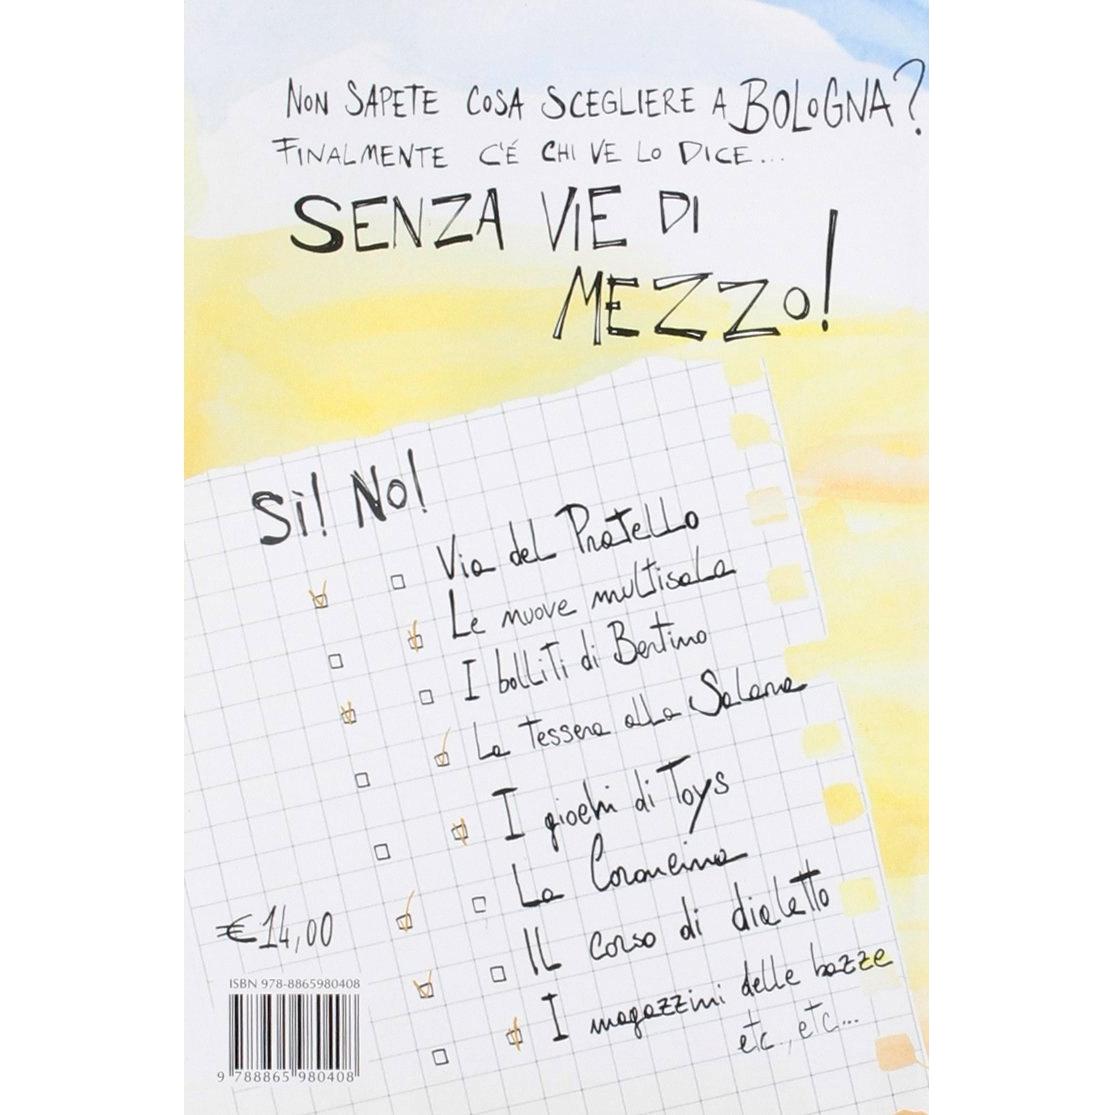 NON SAPETE COSA SCEGLIERE A BOLOGNA?
FINALMENTE C'É CHI VE LO DICE...
SENZA VIE DI
MEZZO!
Sì! No!
Via del Pratello
Le nuove multisala
I bolliti di Bertino
La tessera alla Salara
I giochi di Toys
La Coroncina
IL corso di dialetto
I magazzini delle bazze
etc., etc...
€14,00
ISBN 978-8865980408
9 788865 980408